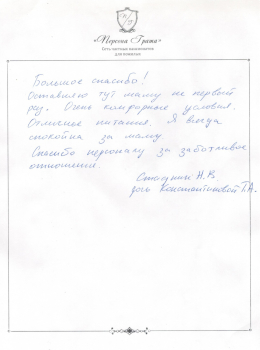 «Персона Грата»
Сеть частных пансионатов
для пожилых
Большое спасибо!
Оставляю тут маму не первый
раз. Очень комфорные условия.
Отличное питание. Я всегда
спокойна за маму
Спасибо персоналу за заботливое
отношение.
Н.В
дочь Константиновой Т.А.